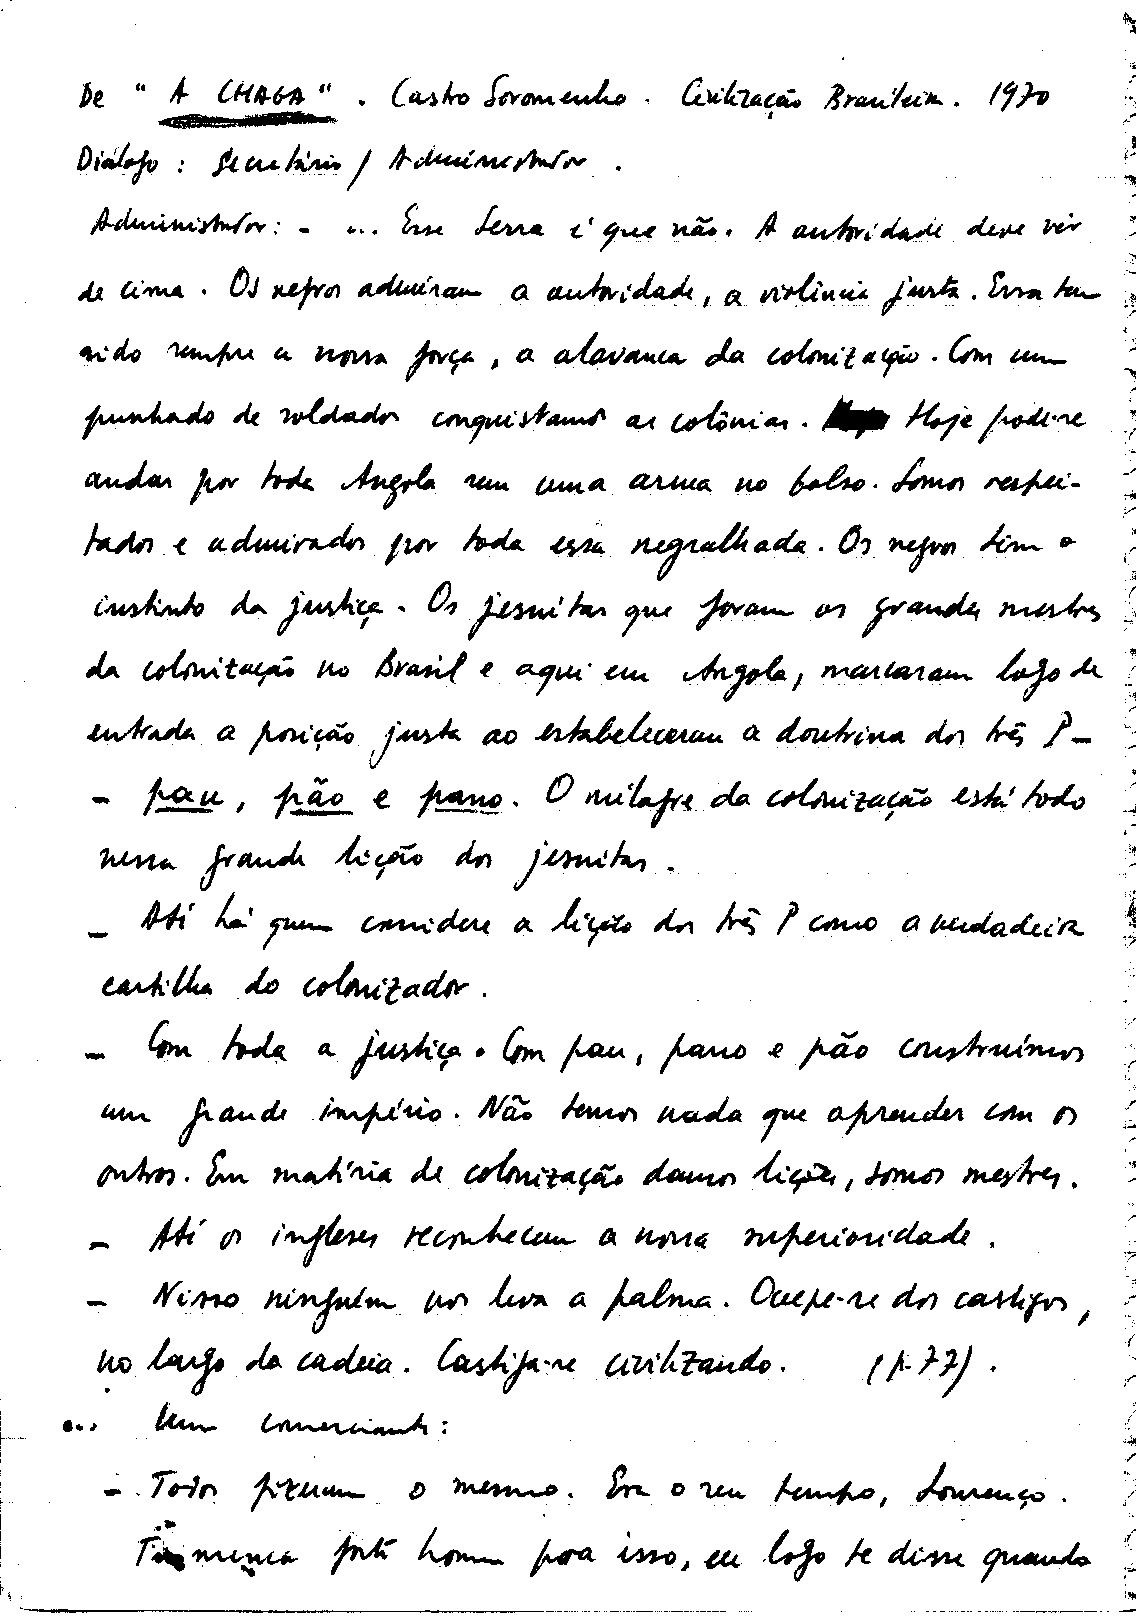 De "A CHAGA". Castro Soromenho. Civilização Brasileira. 1970
Diálogo: Secretário / Administrador.
Administrador: - ... Esse Serra é que não. A autoridade deve vir
de cima. Os negros admiram a autoridade, a violência justa. Essa tem
sido sempre a nossa força, a alavanca da colonização. Com um
punhado de soldados conquistamos as colónias. Hoje pode-se
andar por toda Angola sem uma arma no bolso. Somos respei-
tados e admirados por toda essa negralhada. Os negros têm o
instinto da justiça. Os jesuítas que foram os grandes mestres
da colonização no Brasil e aqui em Angola, marcaram logo de
entrada a posição justa ao estabelecerem a doutrina dos três P -
- pau, pão e pano. O milagre da colonização está todo
nessa grande lição dos jesuítas.
- Até há quem considere a lição dos três P como a verdadeira
cartilha do colonizador.
- Com toda a justiça. Com pau, pano e pão construímos
um grande império. Não temos nada que aprender com os
outros. Em matéria de colonização damos lições, somos mestres.
- Até os ingleses reconhecem a nossa superioridade.
- Nisso ninguém nos leva a palma. Ocupe-se dos castigos,
no largo da cadeia. Castiga-se civilizando. (p. 77).
... Um comerciante:
- Todos fizeram o mesmo. Era o seu tempo, Lourenço.
Tu nunca foste homem para isso, eu logo te disse quando